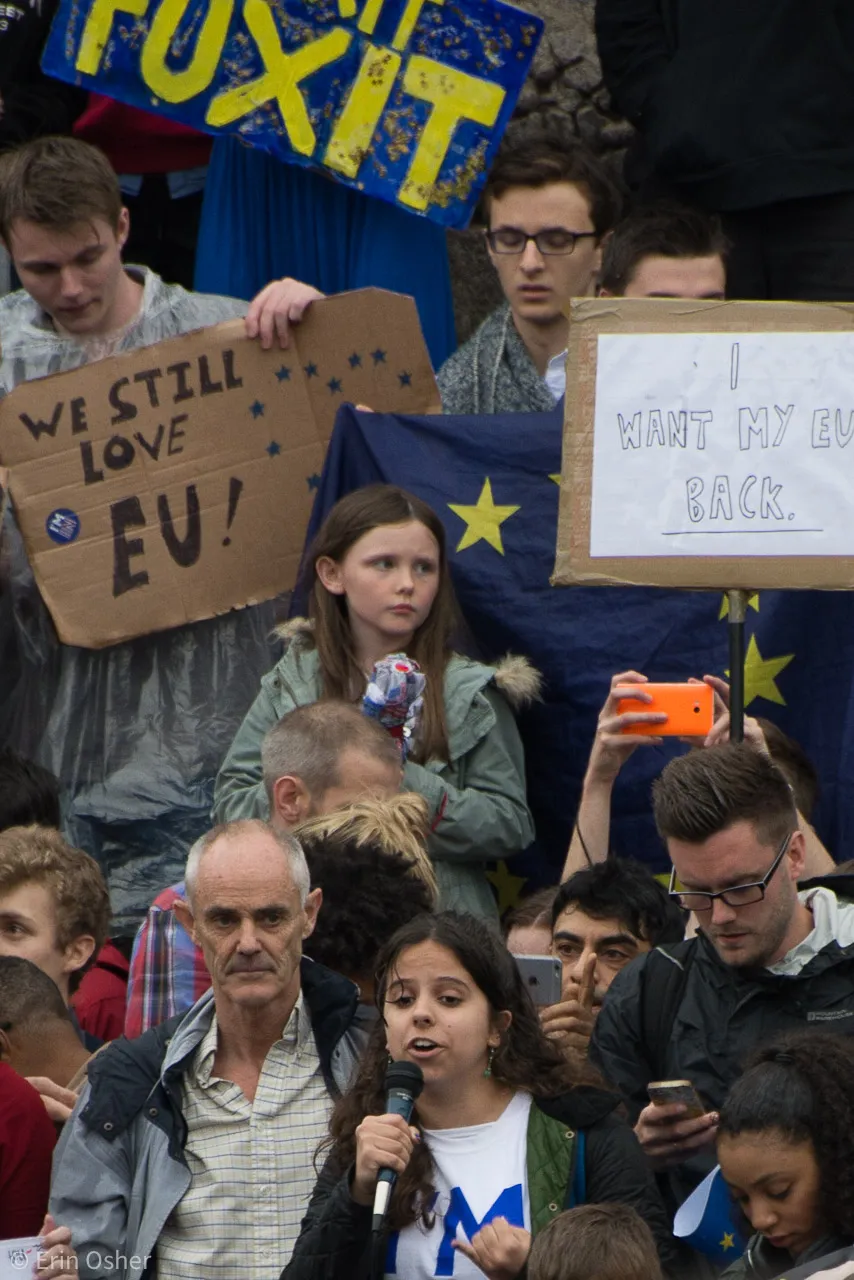 FUXIT
WE STILL
LOVE
EU!
I'M
I
WANT MY EU
BACK.
I'M
© Erin Osher